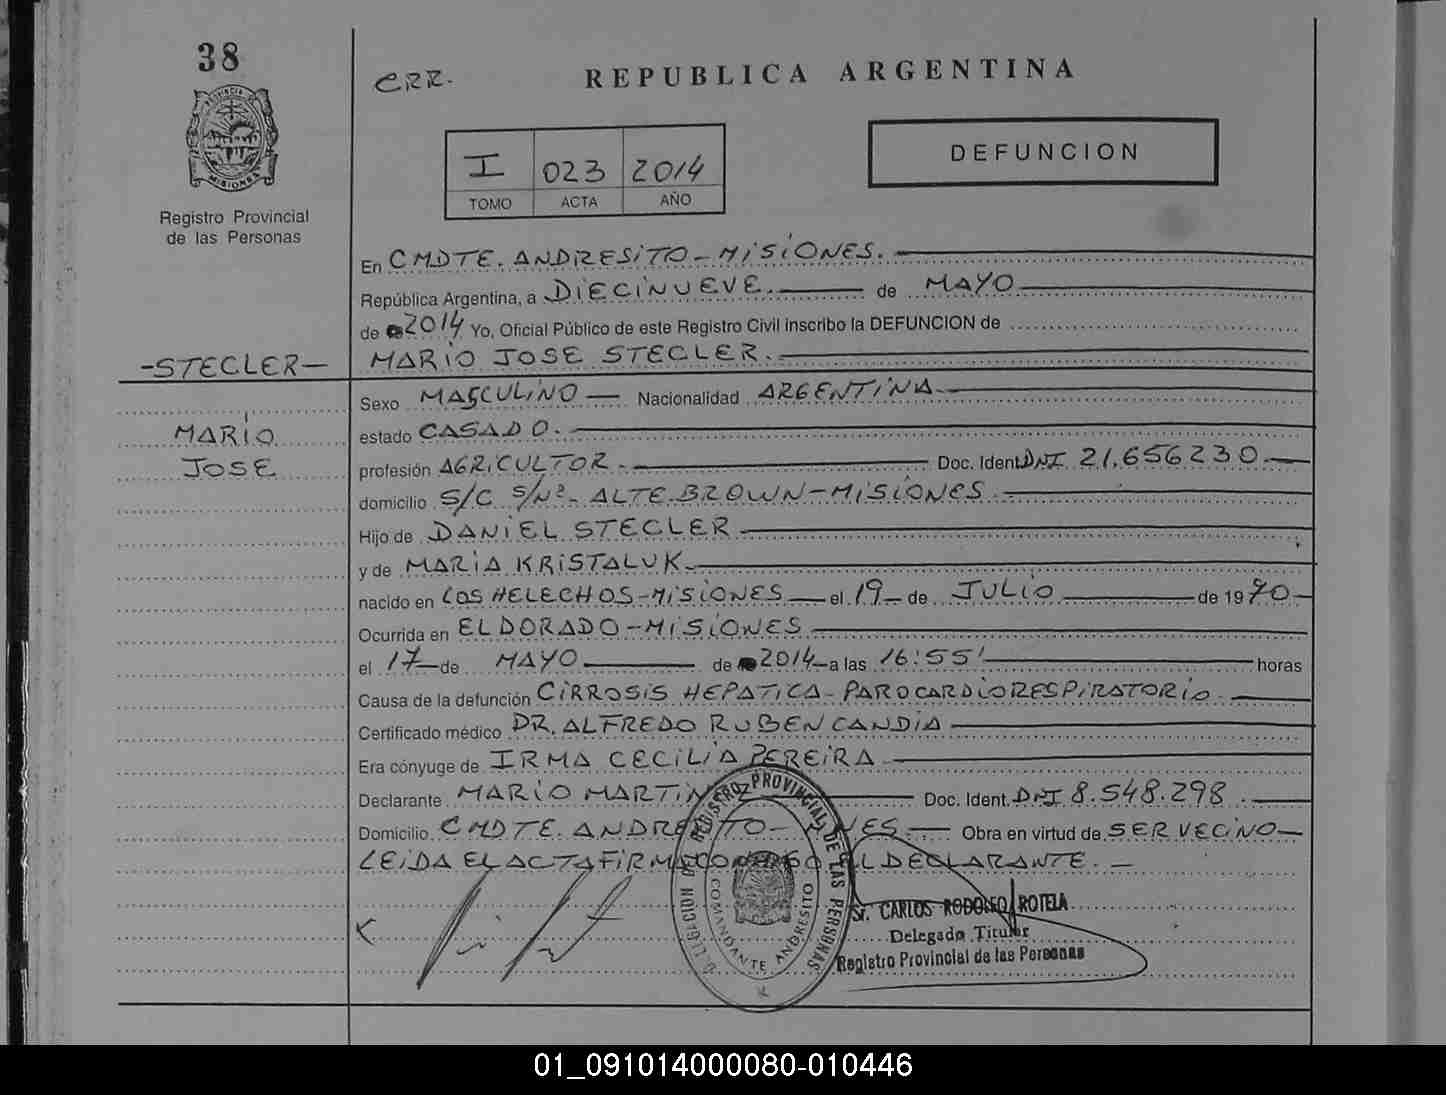 38
PROVINCIA DE
MISIONES
Registro Provincial
de las Personas
CRR.
REPUBLICA ARGENTINA
I 023 2014
TOMO ACTA AÑO
DEFUNCION
En CMDTE. ANDRESITO - MISIONES.
República Argentina, a DIECINUEVE de MAYO
de 2014 Yo, Oficial Público de este Registro Civil inscribo la DEFUNCION de
-STECLER- MARIO JOSE STECLER.
Sexo MASCULINO Nacionalidad ARGENTINA
MARIO estado CASADO.
JOSE profesión AGRICULTOR. Doc. Ident. DNI 21.656230
domicilio S/C S/Nº - ALTE. BROWN - MISIONES
Hijo de DANIEL STECLER
y de MARIA KRISTALUK
nacido en LOS HELECHOS - MISIONES el 19 de JULIO de 1970
Ocurrida en ELDORADO - MISIONES
el 17 de MAYO de 2014 a las 16:55' horas
Causa de la defunción CIRROSIS HEPATICA - PAROCARDIORESPIRATORIO
Certificado médico DR. ALFREDO RUBEN CANDIA
Era cónyuge de IRMA CECILIA PEREIRA
Declarante MARIO MARTINEZ Doc. Ident. DNI 8.548.298
Domicilio CMDTE. ANDRESITO - Obra en virtud de SER VECINO
LEIDA EL ACTA FIRMA CONMIGO EL DECLARANTE.
DELEGACION DEL REGISTRO PROVINCIAL DE LAS PERSONAS
COMANDANTE ANDRESITO
Sr. CARLOS RODOLFO ROTELA
Delegado Titular
Registro Provincial de las Personas
01_091014000080-010446